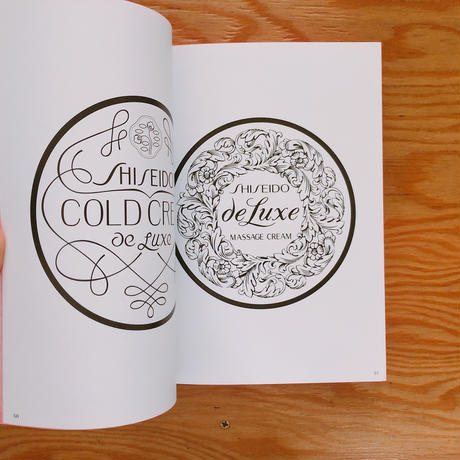 SHISEIDO
COLD CRE
de Luxe
SHISEIDO
de Luxe
MASSAGE CREAM